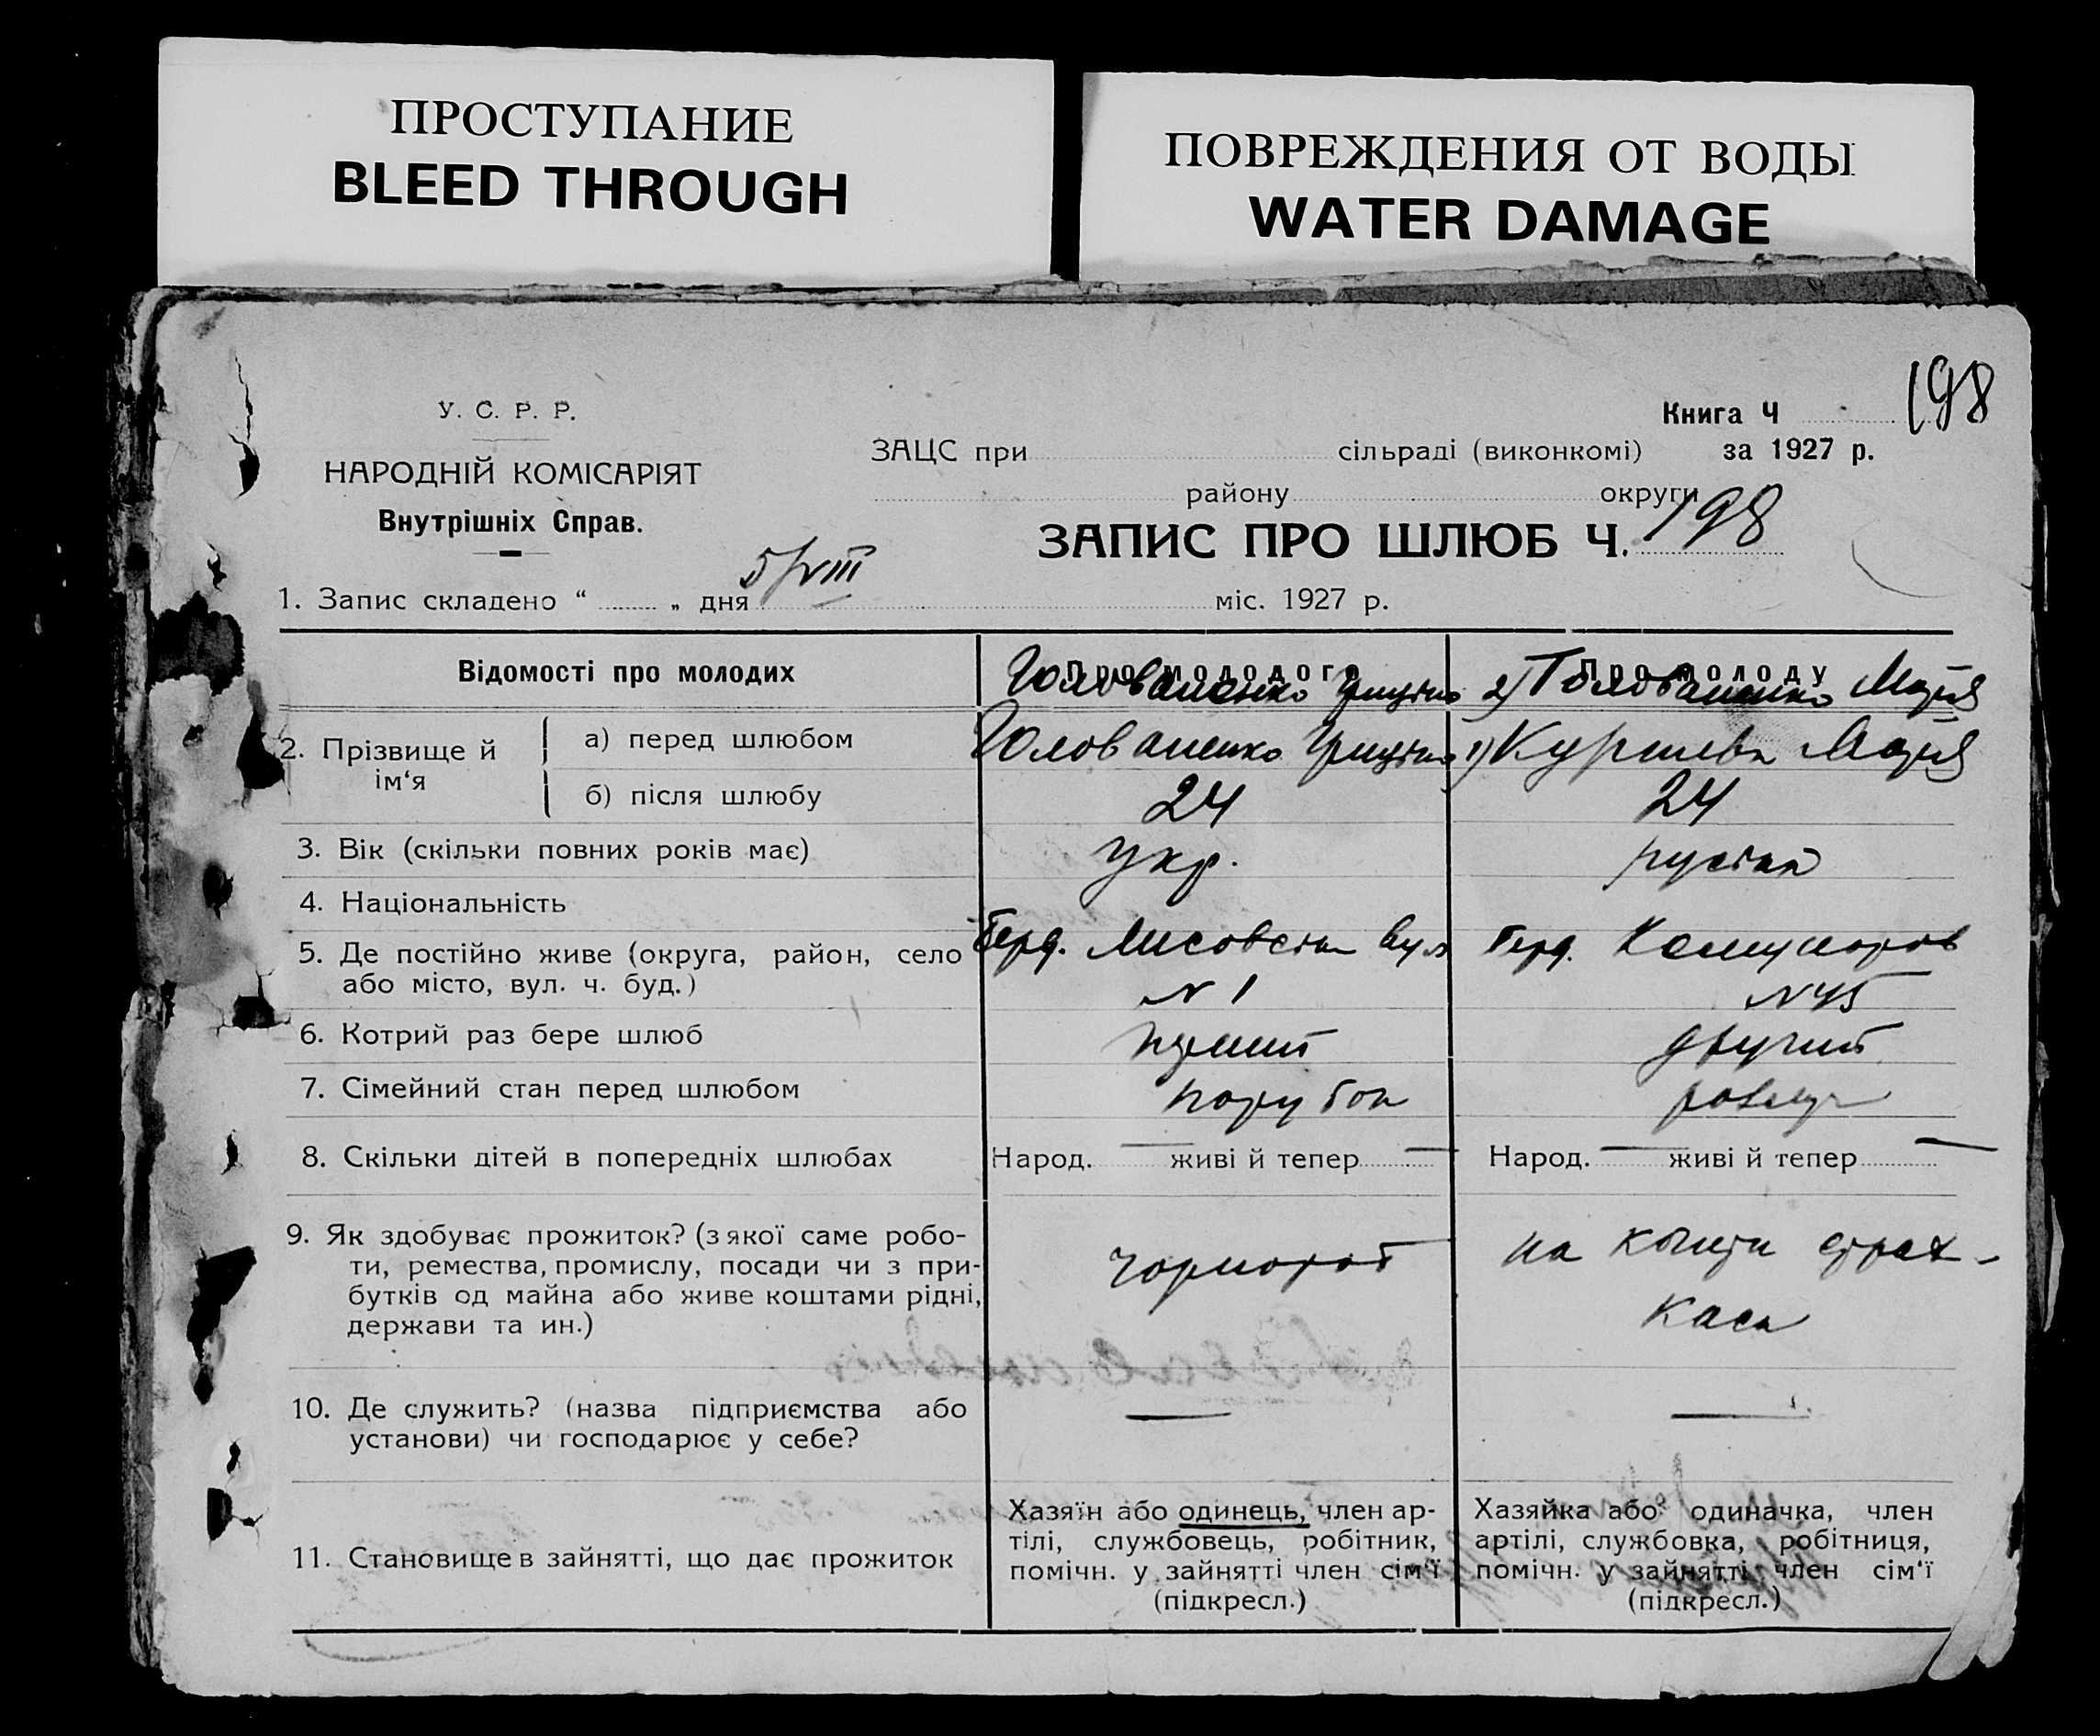 ПРОСТУПАНИЕ
BLEED THROUGH
ПОВРЕЖДЕНИЯ ОТ ВОДЫ
WATER DAMAGE
198
У. С. Р. Р.
НАРОДНІЙ КОМІСАРІЯТ
Внутрішніх Справ.
Книга Ч
ЗАЦС при сільраді (виконкомі) за 1927 р.
району округи
ЗАПИС ПРО ШЛЮБ Ч. 198
1. Запис складено “ „ дня 5/VIII міс. 1927 р.
Відомості про молодих
Про молодого
Про молоду
Голованенко Грицько
2) Голованенко Марія
2. Прізвище й ім‘я
а) перед шлюбом
Голованенко Грицько
1) Марія
б) після шлюбу
24
24
3. Вік (скільки повних років має)
Укр.
4. Національність
5. Де постійно живе (округа, район, село
або місто, вул. ч. буд.)
Берд. Лисовська вул
N 1
Берд. Комунаров
N 45
6. Котрий раз бере шлюб
другий
7. Сімейний стан перед шлюбом
парубок
8. Скільки дітей в попередніх шлюбах
Народ. — живі й тепер —
Народ. — живі й тепер —
9. Як здобуває прожиток? (з якої саме робо-
ти, ремества, промислу, посади чи з при-
бутків од майна або живе коштами рідні,
держави та ин.)
чорнороб
на кошти страх-
каси
10. Де служить? (назва підприємства або
установи) чи господарює у себе?
—
—
11. Становище в зайнятті, що дає прожиток
Хазяїн або одинець, член ар-
тілі, службовець, робітник,
помічн. у зайнятті член сім‘ї
(підкресл.)
Хазяйка або одиначка, член
артілі, службовка, робітниця,
помічн. у зайнятті член сім‘ї
(підкресл.)